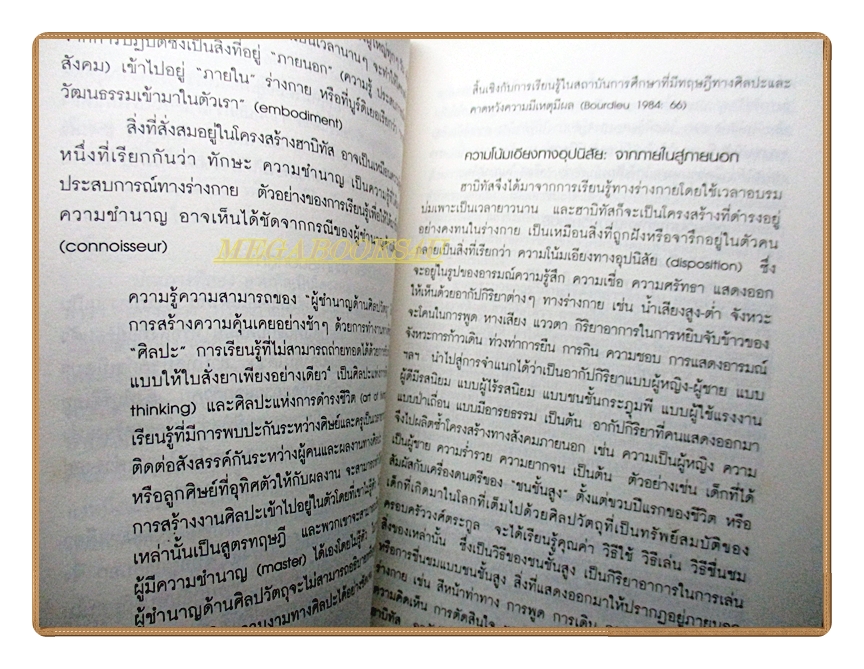 จากการปฏิบัติซึ่งเป็นสิ่งที่อยู่ "ภายนอก" (ความรู้ ประสบ
สังคม) เข้าไปอยู่ "ภายใน" ร่างกาย หรือที่บูร์ดิเยอเรียก
วัฒนธรรมเข้ามาในตัวเรา" (embodiment)
สิ่งที่สั่งสมอยู่ในโครงสร้างฮาบิทัส อาจเป็นเหมือน
หนึ่งที่เรียกกันว่า ทักษะ ความชำนาญ เป็นความรู้ที่
ประสบการณ์ทางร่างกาย ตัวอย่างของการเรียนรู้เพื่อให้ได้
ความชำนาญ อาจเห็นได้ชัดจากกรณีของผู้ชำนาญ
(connoisseur)
ความรู้ความสามารถของ "ผู้ชำนาญด้านศิลปวัตถุ"
การสร้างความคุ้นเคยอย่างช้าๆ ด้วยการทำงาน
"ศิลปะ" การเรียนรู้ที่ไม่สามารถถ่ายทอดได้ด้วย
แบบให้ใบสั่งยาเพียงอย่างเดียว⁴ เป็นศิลปะแห่ง
thinking) และศิลปะแห่งการดำรงชีวิต (art of
เรียนรู้ที่มีการพบปะกันระหว่างศิษย์และครูเป็น
ติดต่อสังสรรค์กันระหว่างผู้คนและผลงานทาง
หรือลูกศิษย์ที่อุทิศตัวให้กับผลงาน จะสามารถ
การสร้างงานศิลปะเข้าไปอยู่ในตัวโดยที่เขาไม่รู้ตัว
เหล่านั้นเป็นสูตรทฤษฎี และพวกเขาจะสามารถ
ผู้มีความชำนาญ (master) ได้เองโดยไม่รู้ตัว
ผู้ชำนาญด้านศิลปวัตถุจะไม่สามารถอธิบาย
ความงามทางศิลปะได้อย่าง
MEGABOOKS4U
สิ้นเชิงกับการเรียนรู้ในสถาบันการศึกษาที่มีทฤษฎีทางศิลปะและ
คาดหวังความมีเหตุมีผล (Bourdieu 1984: 66)
ความโน้มเอียงทางอุปนิสัย: จากภายในสู่ภายนอก
ฮาบิทัสจึงได้มาจากการเรียนรู้ทางร่างกายโดยใช้เวลาอบรม
บ่มเพาะเป็นเวลายาวนาน และฮาบิทัสก็จะเป็นโครงสร้างที่ดำรงอยู่
อย่างคงทนในร่างกาย เป็นเหมือนสิ่งที่ถูกฝังหรือจารึกอยู่ในตัวคน
กลายเป็นสิ่งที่เรียกว่า ความโน้มเอียงทางอุปนิสัย (disposition) ซึ่ง
จะอยู่ในรูปของอารมณ์ความรู้สึก ความเชื่อ ความศรัทธา แสดงออก
ให้เห็นด้วยอากัปกิริยาต่างๆ ทางร่างกาย เช่น น้ำเสียงสูง-ต่ำ จังหวะ
จะโคนในการพูด หางเสียง แววตา กิริยาอาการในการหยิบจับข้าวของ
จังหวะการก้าวเดิน ท่วงท่าการยืน การกิน ความชอบ การแสดงอารมณ์
ฯลฯ นำไปสู่การจำแนกได้ว่าเป็นอากัปกิริยาแบบผู้หญิง-ผู้ชาย แบบ
ผู้ดีมีรสนิยม แบบผู้ไร้รสนิยม แบบชนชั้นกระฎุมพี แบบผู้ใช้แรงงาน
แบบป่าเถื่อน แบบมีอารยธรรม เป็นต้น อากัปกิริยาที่คนแสดงออกมา
จึงไปผลิตซ้ำโครงสร้างทางสังคมภายนอก เช่น ความเป็นผู้หญิง ความ
เป็นผู้ชาย ความร่ำรวย ความยากจน เป็นต้น ตัวอย่างเช่น เด็กที่ได้
สัมผัสกับเครื่องดนตรีของ "ชนชั้นสูง" ตั้งแต่ขวบปีแรกของชีวิต หรือ
เด็กที่เกิดมาในโลกที่เต็มไปด้วยศิลปวัตถุที่เป็นทรัพย์สมบัติของ
ครอบครัววงศ์ตระกูล จะได้เรียนรู้คุณค่า วิธีใช้ วิธีเล่น วิธีชื่นชม
สิ่งของเหล่านั้น ซึ่งเป็นวิธีของชนชั้นสูง เป็นกิริยาอาการในการเล่น
หรือการชื่นชมแบบชนชั้นสูง สิ่งที่แสดงออกมาให้ปรากฏอยู่ภายนอก
ร่างกาย เช่น สีหน้าท่าทาง การพูด การเดิน
ความคิดเห็น การตัดสินใจ
ฮาบิทัส